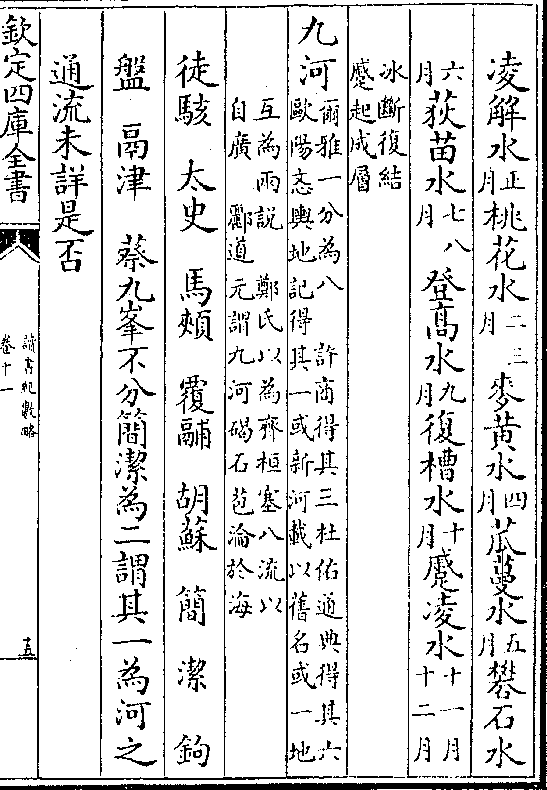 凌解水正月桃花水二三月麥黄水四月苽蔓水五月礬石水
六月荻苗水七八月登髙水九月復槽水十月蹙凌水十一月十二月
冰斷復結
蹙起成層
九河爾雅一分為八 許商得其三杜佑通典得其六
歐陽忞輿地記得其一或新河載以舊名或一地
互為兩説 鄭氏以為齊桓塞八流以
自廣 酈道元謂九河碣石苞淪於海
徒駭 太史 馬頰 覆鬴 胡蘇 簡 潔 鉤
盤 鬲津 蔡九峯不分簡潔為二謂其一為河之
通流未詳是否
欽定四庫全書
讀書紀數略
卷十一
五